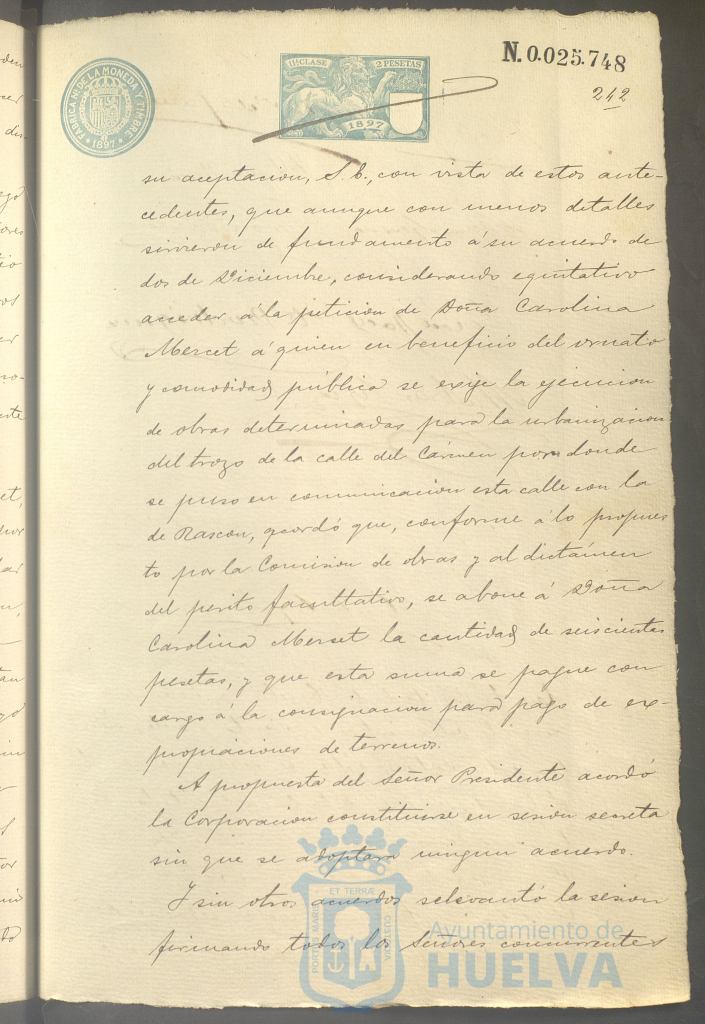 N. 0.025.748
242
11ª CLASE 2 PESETAS
1897
FÁBRICA NL. DE LA MONEDA Y TIMBRE
1897
su aceptacion, S. E., con vista de estos ante-
cedentes, que aunque con menos detalles
sirvieron de fundamento á su acuerdo de
dos de Diciembre, considerando equitativo
acceder á la peticion de Doña Carolina
Mercet á quien en beneficio del ornato
y comodidad pública se exije la ejecucion
de obras determinadas para la urbanizacion
del trozo de la calle del Cármen por donde
se puso en comunicacion esta calle con la
de Rascon, acordó que, conforme á lo propues
to por la Comision de obras y al dictámen
del perito facultativo, se abone á Doña
Carolina Merset la cantidad de seiscientas
pesetas, y que esta suma se pague con
cargo á la consignacion para pago de ex-
propiaciones de terrenos.
A propuesta del Señor Presidente acordó
la Corporacion constituirse en sesion secreta
sin que se adoptara ningun acuerdo.
Y sin otros acuerdos se levantó la sesion
firmando todos los Señores concurrentes
PORTUS MARIS ET TERRÆ CUSTODIA
Ayuntamiento de
HUELVA